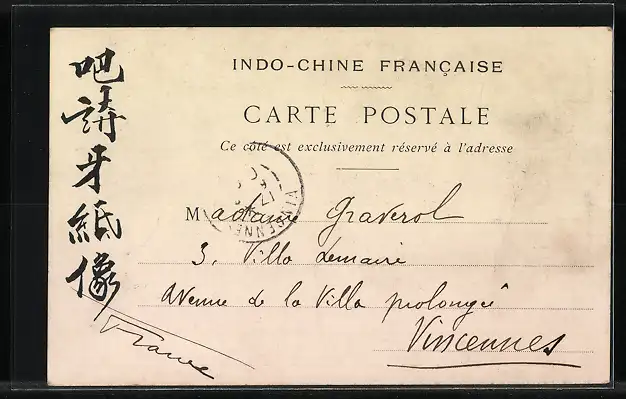 INDO-CHINE FRANÇAISE
CARTE POSTALE
Ce côté est exclusivement réservé à l'adresse
Madame Graverol
3, Villa Lemaire
Avenue de la Villa prolongée
Vincennes
France
吧
牙紙像
VINCENNES
17